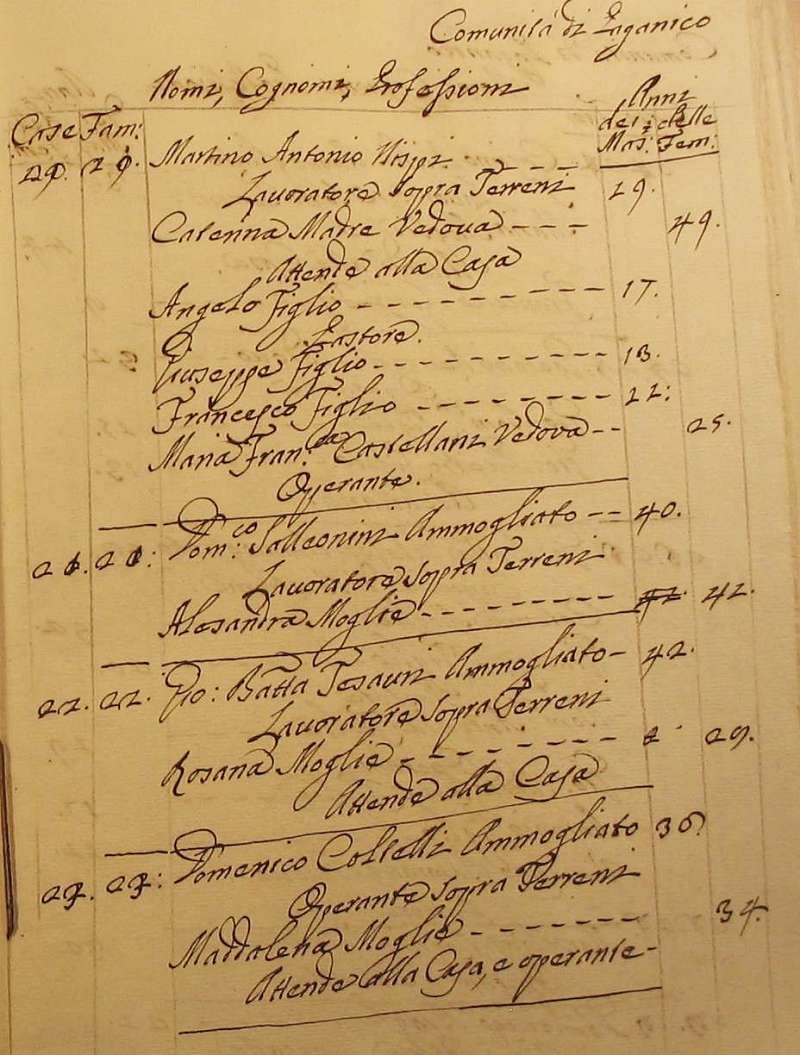 Comunità di Paganico
Nomi, Cognomi, Professioni
Anni
Case Fam: de: delle
Mas: Fem:
20. 20. Martino Antonio Nispi
Lavoratore sopra Terreni 29.
Catenna Madre Vedova --- 49.
Attende alla Casa
Angelo Figlio --------- 17.
Pastore.
Giuseppe Figlio --------- 13.
Francesco Figlio -------- 22:
Maria Fran.ca Castellani Vedova -- 25.
Operante.
21. 21: Dom:co Salleonini Ammogliato -- 40.
Lavoratore sopra Terreni
Alesandra Moglie -------- 42.
22. 22. Gio: Batta Tesauri Ammogliato - 42.
Lavoratore sopra Terreni
Rosana Moglie -------- 29.
Attende alla Casa
23. 23: Domenico Coltelli Ammogliato 36
Operante sopra Terreni
Maddalena Moglie ------- 34.
Attende alla Casa, e operante -